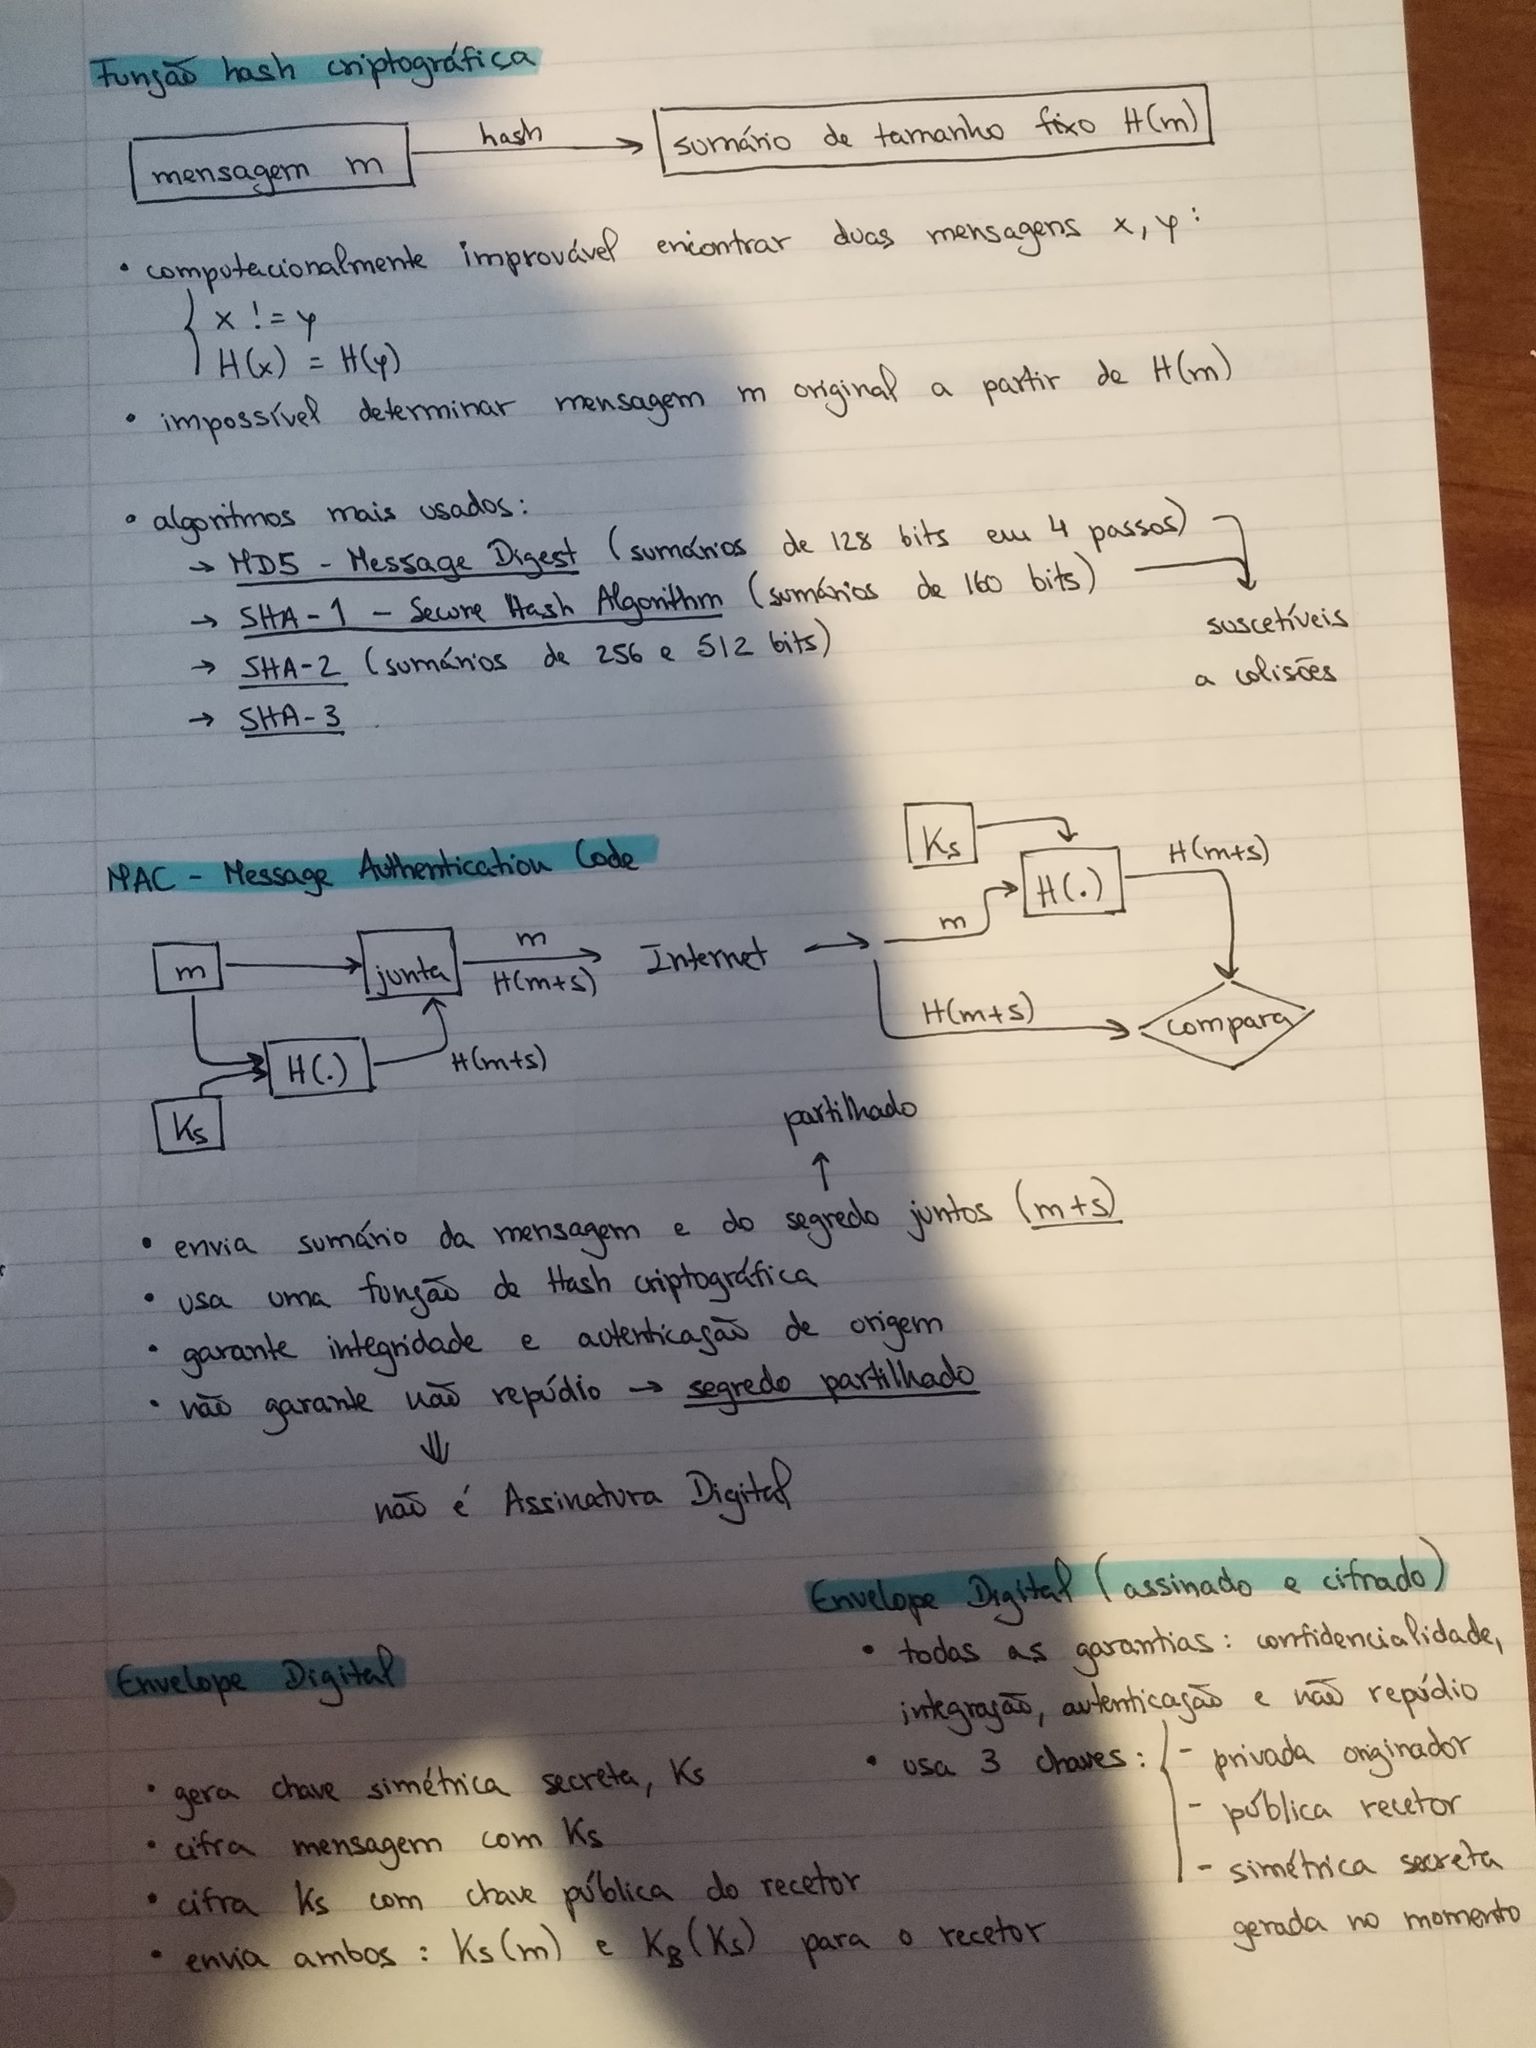 Função hash criptográfica
mensagem m
hash
sumário de tamanho fixo H(m)
• computacionalmente improvável encontrar duas mensagens x, y:
x != y
H(x) = H(y)
• impossível determinar mensagem m original a partir de H(m)
• algoritmos mais usados:
→ MD5 - Message Digest (sumários de 128 bits em 4 passos)
→ SHA-1 - Secure Hash Algorithm (sumários de 160 bits)
suscetíveis
a colisões
→ SHA-2 (sumários de 256 e 512 bits)
→ SHA-3
MAC - Message Authentication Code
m
junta
m
H(m+s)
Internet
H(.)
H(m+s)
Ks
Ks
H(.)
H(m+s)
m
H(m+s)
compara
partilhado
↑
• envia sumário da mensagem e do segredo juntos (m+s)
• usa uma função de Hash criptográfica
• garante integridade e autenticação de origem
• não garante não repúdio → segredo partilhado
⇓
não é Assinatura Digital
Envelope Digital
• gera chave simétrica secreta, Ks
• cifra mensagem com Ks
• cifra Ks com chave pública do recetor
• envia ambos : Ks(m) e KB(Ks) para o recetor
Envelope Digital (assinado e cifrado)
• todas as garantias : confidencialidade,
integração, autenticação e não repúdio
• usa 3 chaves : - privada originador
- pública recetor
- simétrica secreta
gerada no momento